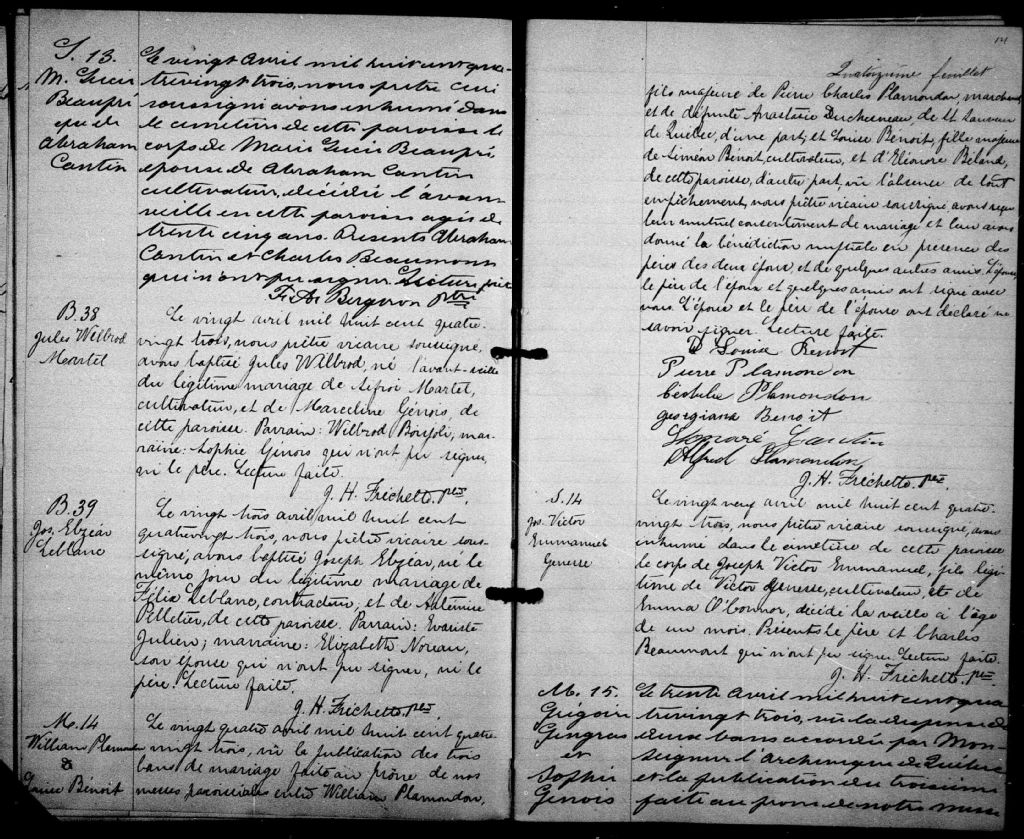 S. 13.
M. Lucie
Beaupré
épse de
Abraham
Cantin
Le vingt Avril mil huit cent qua-
trevingt trois, nous prêtre curé
soussigné avons inhumé dans
le cimetière de cette paroisse le
corps de Marie Lucie Beaupré
épouse de Abraham Cantin
cultivateur, décédée l'avant
veille en cette paroisse agée de
trente cinq ans. Présents Abraham
Cantin et Charles Beaumont
qui n'ont pu signer. Lecture faite
F. A. Bergeron Ptre
B. 38
Jules Wilbrod
Martel
Le vingt avril mil huit cent quatre-
vingt trois, nous prêtre vicaire soussigné,
avons baptisé Jules Wilbrod, né l'avant-veille
du légitime mariage de Sifroi Martel,
cultivateur, et de Marceline Génois, de
cette paroisse. Parrain: Wilbrod Bonjoli, mar-
raine: Sophie Génois qui n'ont pu signer,
ni le père. Lecture faite.
J. H. Fréchette. ptre
B. 39
Jos. Elzéar
Leblanc
Le vingt trois avril, mil huit cent
quatrevingt trois, nous prêtre vicaire sous-
signé, avons baptisé Joseph Elzéar, né le
même jour du légitime mariage de
Félix Leblanc, contracteur, et de Artémise
Pelletier, de cette paroisse. Parrain: Evariste
Julien; marraine: Elizabeth Noreau,
son épouse qui n'ont pu signer, ni le
père. Lecture faite.
J. H. Fréchette. ptre
M. 14
William Plamondon
&
Louise Bénoit
Le vingt quatre avril mil huit cent quatre-
vingt trois, vu la publication des trois
bans de mariage faite au prône de nos
messes paroissiales entre William Plamondon,
14
Quatorzième feuillet
fils majeur de Pierre Charles Plamondon, marchand
et de défunte Anastasie Duchesneau de St Sauveur
de Québec, d'une part, et Louise Bénoit, fille majeure
de Siméon Bénoit, cultivateur, et d'Eléonore Béland,
de cette paroisse, d'autre part, vu l'absence de tout
empêchement, nous prêtre vicaire soussigné, avons reçu
leur mutuel consentement de mariage et leur avons
donné la bénédiction nuptiale en présence des
pères des deux époux, et de quelques autres amis. L'épouse,
le père de l'époux et quelques amis ont signé avec
nous. L'époux et le père de l'épouse ont déclaré ne
savoir signer. Lecture faite.
Louise Benoit
Pierre Plamondon
Plamondon
Georgiana Benoit
Alfred Plamondon
J. H. Fréchette. ptre.
S. 14
Jos. Victor
Emmanuel
Genesse
Le vingt neuf avril mil huit cent quatre-
vingt trois, nous prêtre vicaire soussigné, avons
inhumé dans le cimetière de cette paroisse
le corps de Joseph Victor Emmanuel, fils légi-
time de Victor Genesse, cultivateur, et de
Emma O'Connor, décédé la veille à l'âge
de un mois. Présents le père et Charles
Beaumont qui n'ont pu signer. Lecture faite.
J. H. Fréchette. ptre.
M. 15.
Grégoire
Gingras
et
Sophie
Genois
Le trente Avril mil huit cent qua-
trevingt trois, vu la dispense de
deux bans accordée par Mon-
seigneur l'archevêque de Québec
et la publication du troisième
faite au prone de notre messe